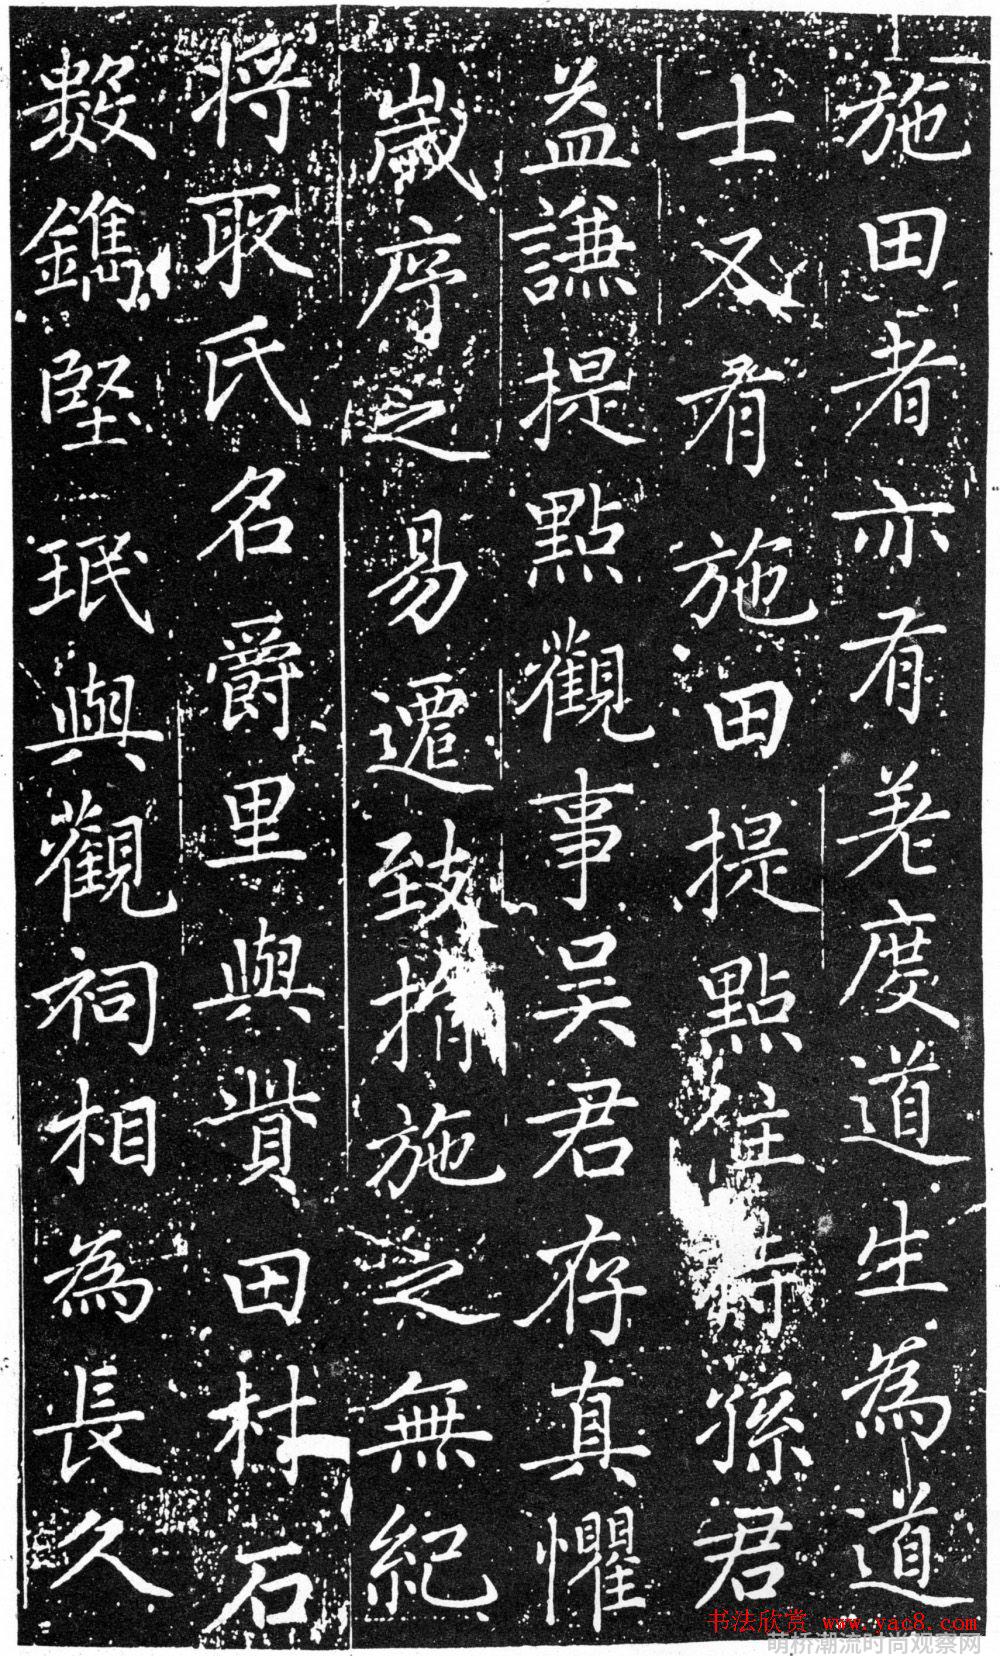 施田者亦有差度道生為道
士又有施田提點住持孫君
益謙提點觀事吳君存真懼
歲序之易遷致捐施之無紀
將取氏名爵里與貲田村石
數鐫堅珉與觀祠相為長久
书法欣赏 www.yac8.com
萌桥潮流时尚观察网